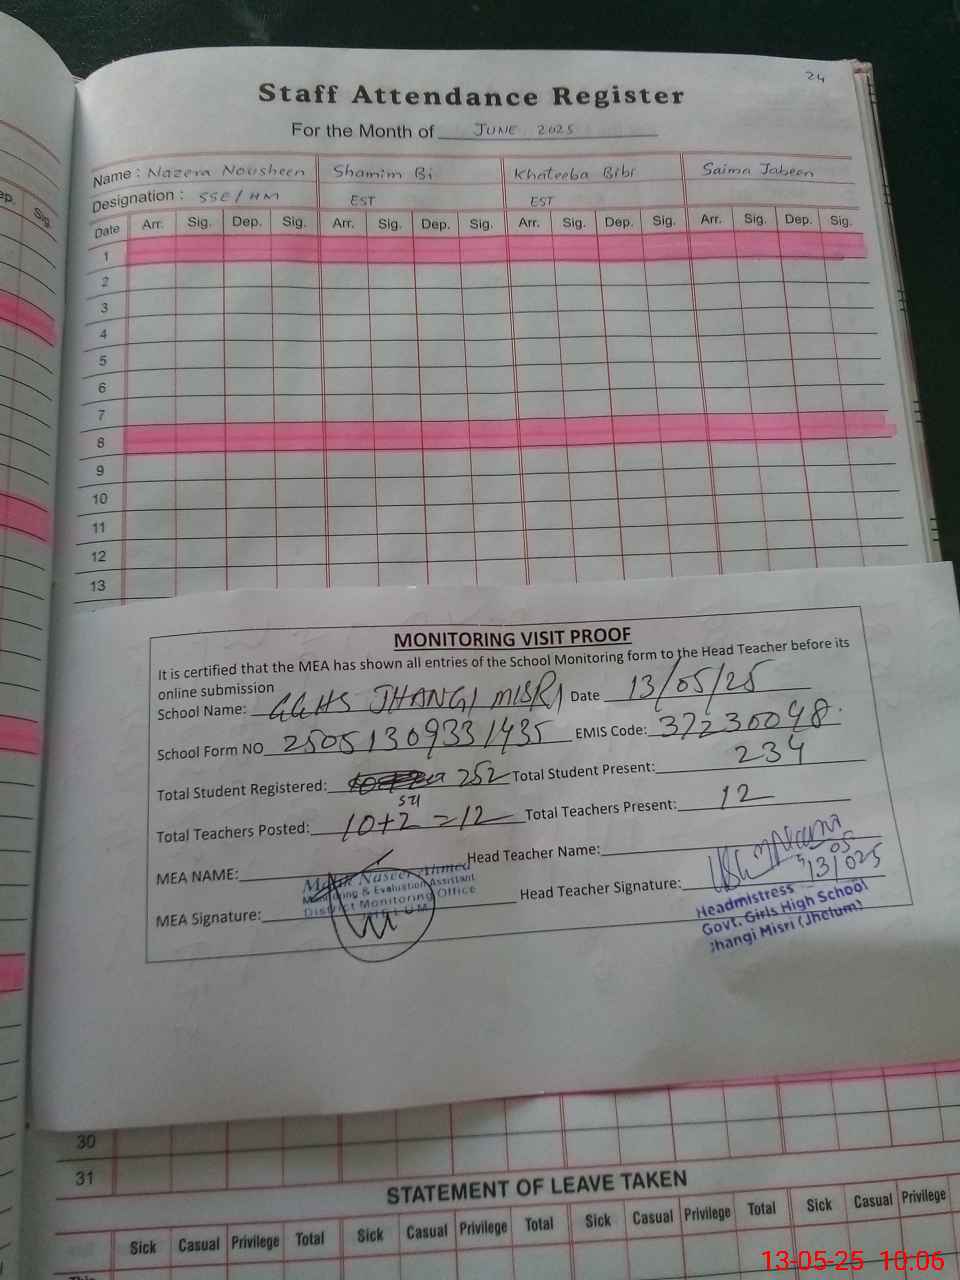 24
Staff Attendance Register
For the Month of JUNE 2025
Name : Nazera Nousheen Shamim Bi Khateeba Bibi Saima Jabeen
Designation : SSE/HM EST EST
Date Arr. Sig. Dep. Sig. Arr. Sig. Dep. Sig. Arr. Sig. Dep. Sig. Arr. Sig. Dep. Sig.
1
2
3
4
5
6
7
8
9
10
11
12
13
ep. Sig.
MONITORING VISIT PROOF
It is certified that the MEA has shown all entries of the School Monitoring form to the Head Teacher before its
online submission
School Name: GGHS JHANGI MISRI Date 13/05/25
School Form NO 25051309331435 EMIS Code: 37230048
Total Student Registered: 252 Total Student Present: 234
Total Teachers Posted: 10+2=12 Total Teachers Present: 12
MEA NAME: Head Teacher Name:
Malik Naseer Ahmed
Monitoring & Evaluation Assistant
District Monitoring Office
MEA Signature: Head Teacher Signature:
Headmistress
Govt. Girls High School
Jhangi Misri (Jhelum)
30
31
STATEMENT OF LEAVE TAKEN
Sick Casual Privilege Total Sick Casual Privilege Total Sick Casual Privilege Total Sick Casual Privilege
This
13-05-25 10.06